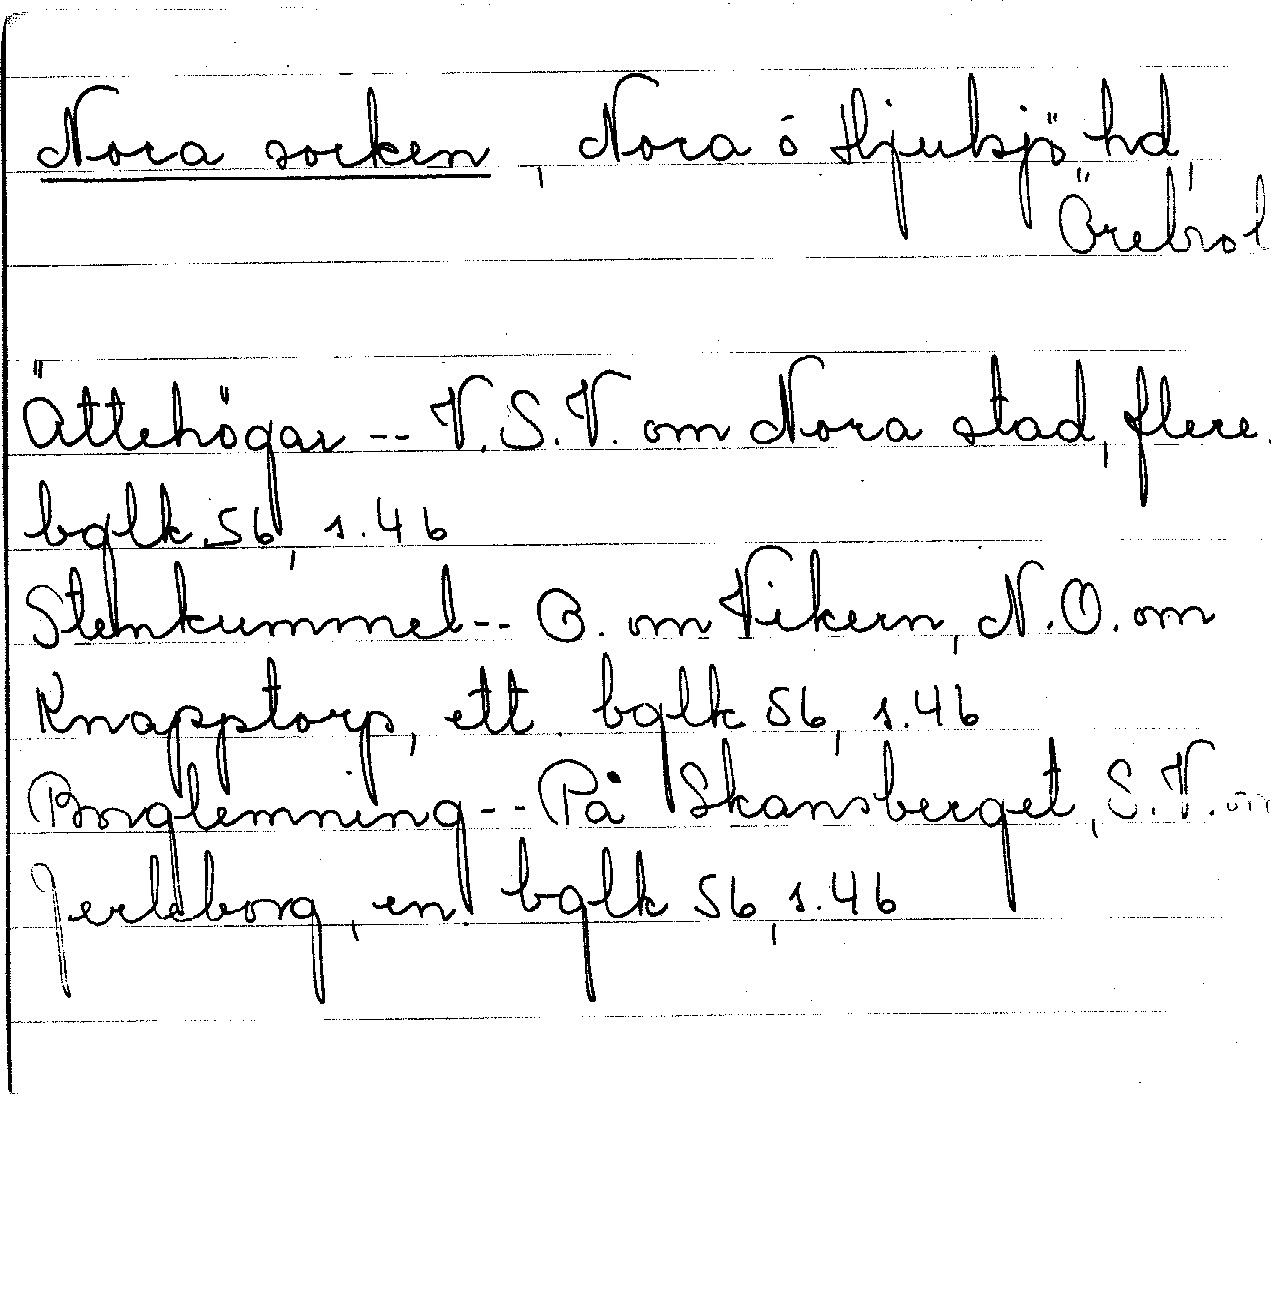 Nora socken, Nora ó Hjulsjö hd,
Örebro l
Ättehögar -- V.S.V. om Nora stad, flere.
bglk 56, s.46
Stenkummel -- O. om Vikern, N.O. om
Knapptorp, ett. bglk 56, s.46
Borglemning -- På Skansberget, S.V. om
Jerleborg, en. bglk 56, s.46